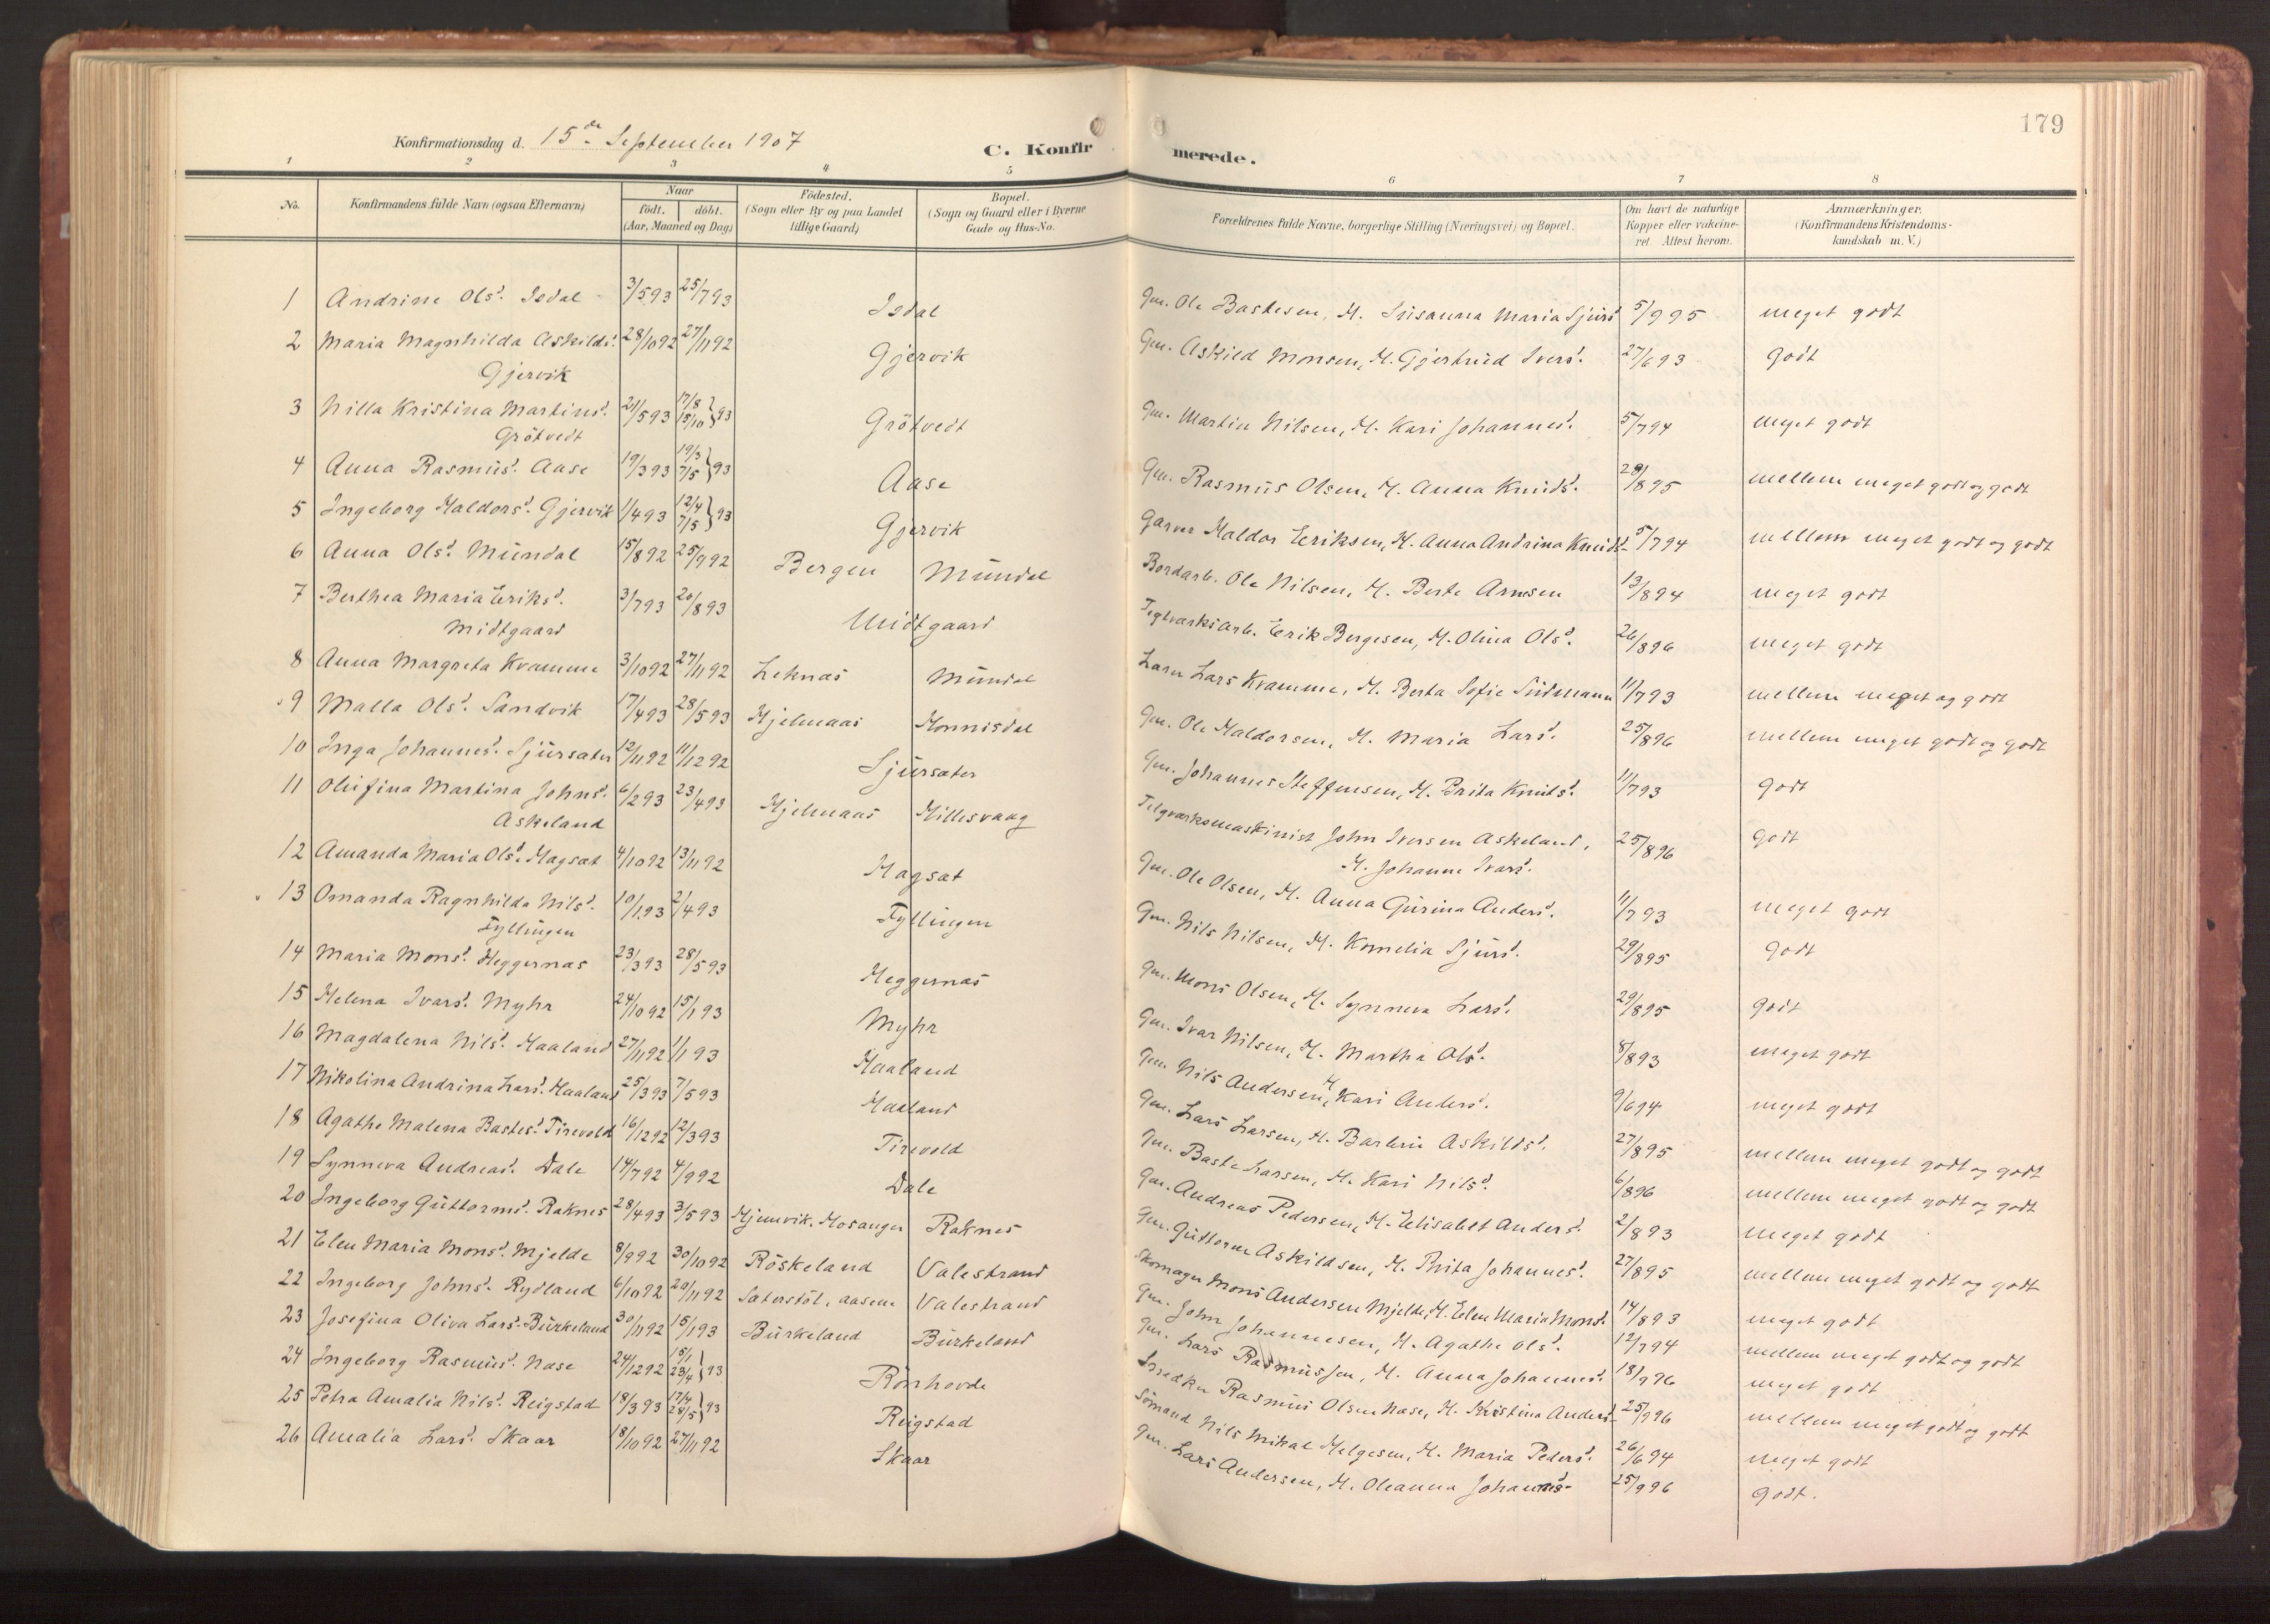 179
Konfirmationsdag d. 15de September 1907
C. Konfirmerede.
1 2 3 4 5 6 7 8
No.
Konfirmandens fulde Navn (ogsaa Efternavn)
Naar
født. døbt.
(Aar, Maaned og Dag)
Fødested.
(Sogn eller By og paa Landet
tillige Gaard)
Bopæl.
(Sogn og Gaard eller i Byerne
Gade og Hus-No.
Forældrenes fulde Navne, borgerlige Stilling (Næringsvei) og Bopæl.
Om havt de naturlige
Kopper eller vakcine-
ret. Attest herom.
Anmærkninger.
(Konfirmandens Kristendoms-
kundskab m. V.)
1 Andrine Olsd. Isdal 3/5 93 25/7 93 Isdal Gm. Ole Bastesen, H. Susanna Maria Sjursd 5/9 95 meget godt
2 Maria Magnhilda Askildsd. 28/10 92 27/11 92 Gjervik Gm. Askild Monsen, H. Gjertrud Iversd. 27/6 93 godt
Gjervik
3 Nilla Kristina Martinsd. 21/5 93 17/8 15/10 } 93 Grötvedt Gm. Martin Nilsen, H. Kari Johannesd. 5/7 94 meget godt
Grötvedt
4 Anna Rasmusd. Aase 19/3 93 19/3 7/5 } 93 Aase Gm. Rasmus Olsen, H. Anna Knudsd. 29/8 95 mellem meget godt og godt
5 Ingeborg Haldorsd. Gjervik 1/4 93 12/4 7/5 } 93 Gjervik Garver Haldor Eriksen, H. Anna Andrina Knudsd. 5/7 94 mellem meget godt og godt
6 Anna Olsd. Mundal 15/8 92 25/9 92 Bergen Mundal Bordarb. Ole Nilsen, H. Berte Arnesen 13/8 94 meget godt
7 Berthea Maria Eriksd. 3/7 93 20/8 93 Midtgaard Teglværksarb. Erik Bergesen, H. Olina Olsd. 26/8 96 meget godt
Midtgaard
8 Anna Margreta Kvamme 3/10 92 27/11 92 Leknæs Mundal Lars Kvamme, H. Berta Sofie 11/7 93 mellem meget og godt
9 Malla Olsd. Sandvik 17/4 93 28/5 93 Hjelmaas Monnisdal Gm. Ole Haldorsen, H. Maria Larsd. 25/8 96 mellem meget godt og godt
10 Inga Johannesd. Sjursæter 12/11 92 11/12 92 Sjursæter Gm. Johannes Steffensen, H. Brita Knutsd. 11/7 93 godt
11 Olufina Martina Johnsd. 6/2 93 23/4 93 Hjelmaas Hillesvaag Telgværksmaskinist John Iversen Askeland, 25/8 96 godt
Askeland H. Johanne Ivarsd.
12 Amanda Maria Olsd. Hagsæt 4/10 92 13/11 92 Hagsæt Gm. Ole Olsen, H. Anna Gurina Andersd. 11/7 93 meget godt
13 Omanda Ragnhilda Nilsd. 10/1 93 2/4 93 Fyllingen Gm. Nils Nilsen, H. Kornelia Sjursd. 29/8 95 godt
Fyllingen
14 Maria Monsd. Heggernæs 23/3 93 28/5 93 Heggernæs Gm. Mons Olsen, H. Synneva Larsd. 29/8 95 godt
15 Helena Ivarsd. Myhr 24/10 92 15/1 93 Myhr Gm. Ivar Nilsen, H. Martha Olsd. 8/8 93 meget godt
16 Magdalena Nilsd. Haaland 27/11 92 1/1 93 Haaland Gm. Nils Andersen, H Kari Andersd. 9/6 94 meget godt
17 Nikolina Andrina Larsd. Haaland 25/3 93 7/5 93 Haaland Gm. Lars Larsen, H. Barbru Askildsd. 27/8 95 mellem meget godt og godt
18 Agathe Malena Bastesd. Tirevold 16/12 92 12/3 93 Tirevold Gm. Baste Larsen, H. Kari Nilsd. 6/8 96 mellem meget godt og godt
19 Synneva Andreasd. Dale 14/7 92 4/9 92 Dale Gm. Andreas Pedersen, H. Elisabet Andersd. 2/8 93 meget godt
20 Ingeborg Guttormsd. Raknes 28/4 93 3/5 93 Hjemvik. Hosanger Raknes Gm. Guttorm Askildsen, H. Brita Johannesd. 27/8 95 mellem meget godt og godt
21 Elen Maria Monsd. Mjelde 8/9 92 30/10 92 Röskeland Valestrand Skomager Mons Andersen Mjelde, H. Elen Maria Monsd. 14/8 93 meget godt
22 Ingeborg Johnsd. Rydland 6/10 92 20/11 92 Sæterstöl, Aasene Valestrand Gm. John Johannesen, H. Agathe Olsd. 12/7 94 mellem meget godt og godt
23 Josefina Oliva Larsd. Burkeland 30/11 92 15/1 93 Burkeland Burkeland Gm. Lars Rasmussen, H. Anna Johannesd. 18/9 96 meget godt
24 Ingeborg Rasmusd. Nase 24/12 92 15/1 23/4 } 93 Rönhovde Rasmus Olsen Nase, H. Kristina Andersd. 25/9 96 mellem meget godt og godt
25 Petra Amalia Nilsd. Reigstad 18/3 93 17/4 28/5 } 93 Reigstad Sömand Nils Mikal Helgesen, H. Maria Pedersd. 26/6 94 meget godt
26 Amalia Larsd. Skaar 18/10 92 27/11 92 Skaar Gm. Lars Andersen, H. Oleanna Johannesd. 25/9 96 godt.